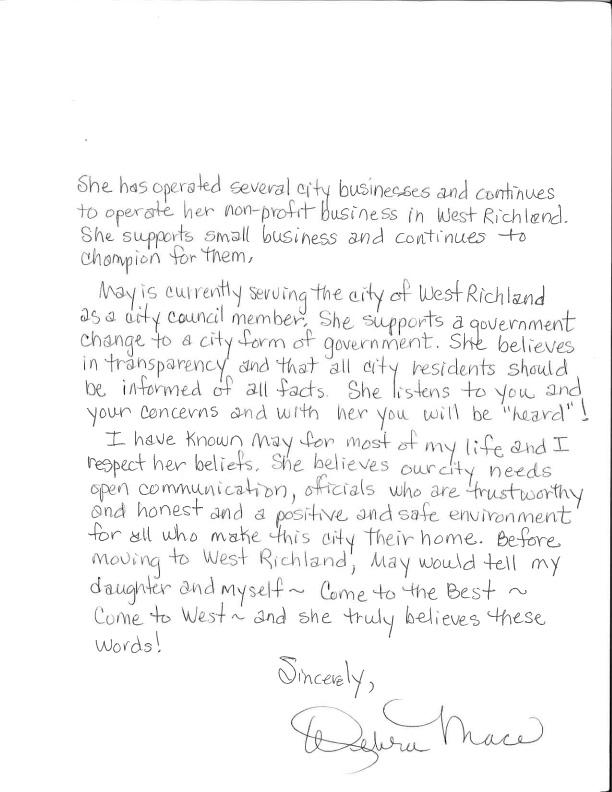 She has operated several city businesses and continues
to operate her non-profit business in West Richland.
She supports small business and continues to
champion for them,
May is currently serving the city of West Richland
as a city council member. She supports a government
change to a city form of government. She believes
in transparency and that all city residents should
be informed of all facts. She listens to you and
your concerns and with her you will be "heard"!
I have known May for most of my life and I
respect her beliefs. She believes our city needs
open communication, officials who are trustworthy
and honest and a positive and safe environment
for all who make this city their home. Before
moving to West Richland, May would tell my
daughter and myself ~ Come to the Best ~
Come to West ~ and she truly believes these
words!
Sincerely,
Debra Mace